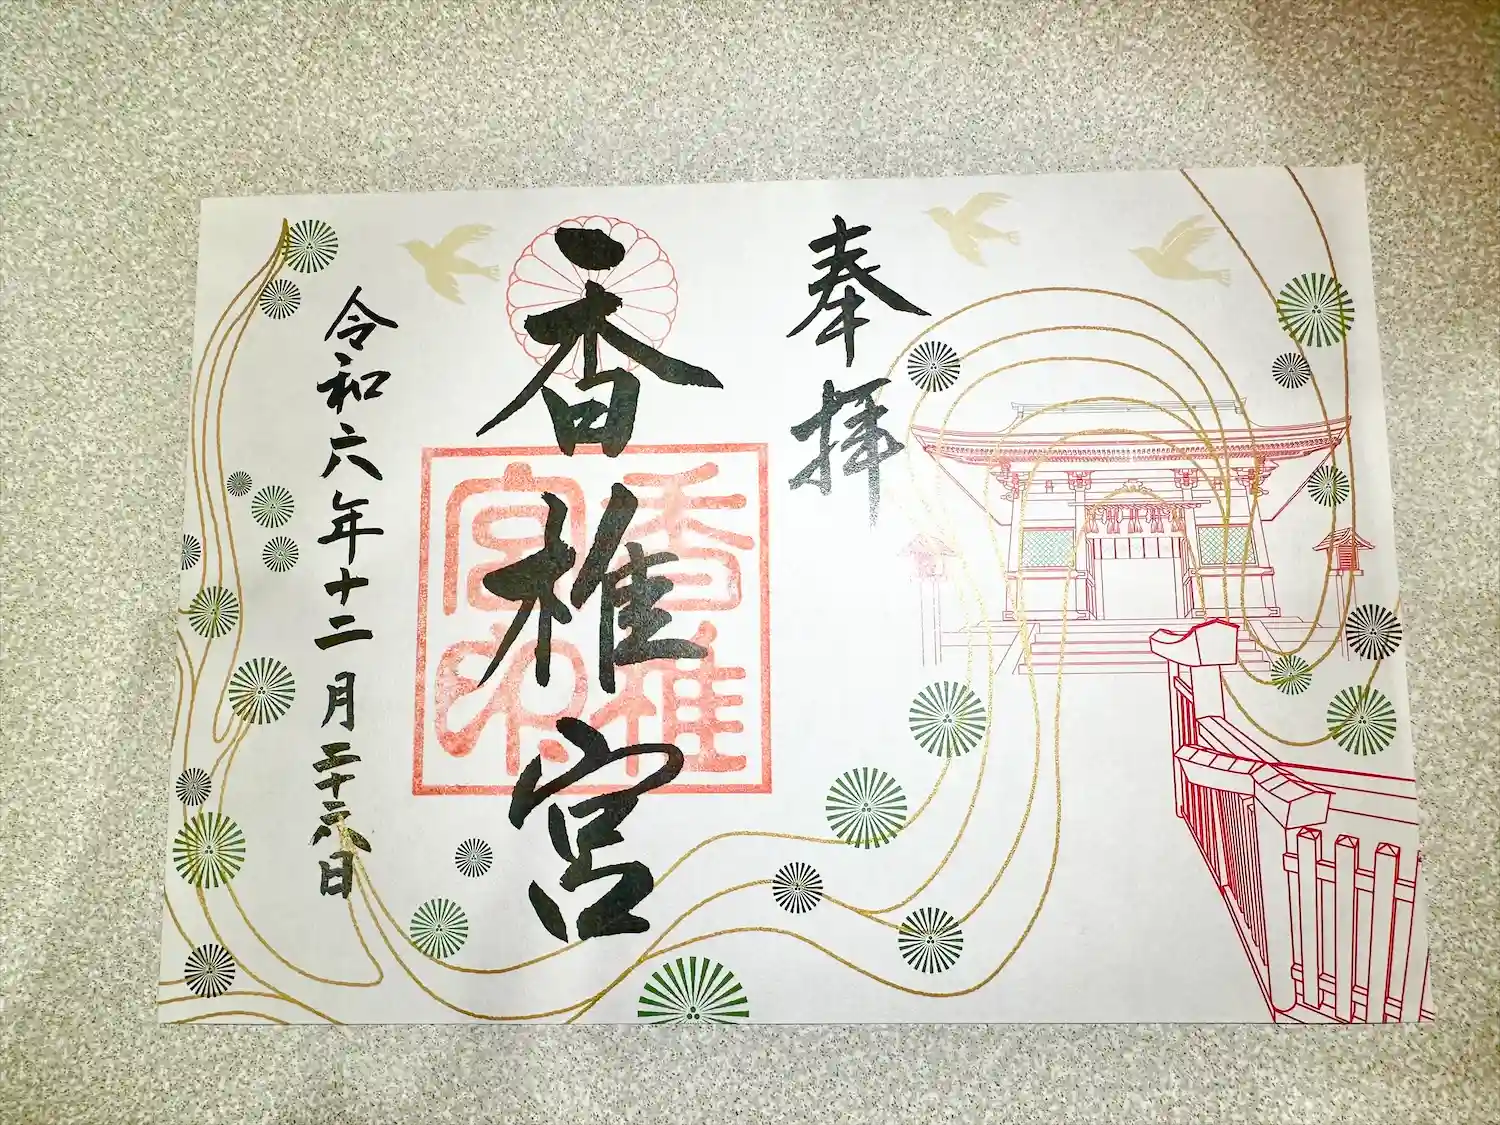 奉拝
香椎宮
香椎
宮印
令和六年十二月二十六日